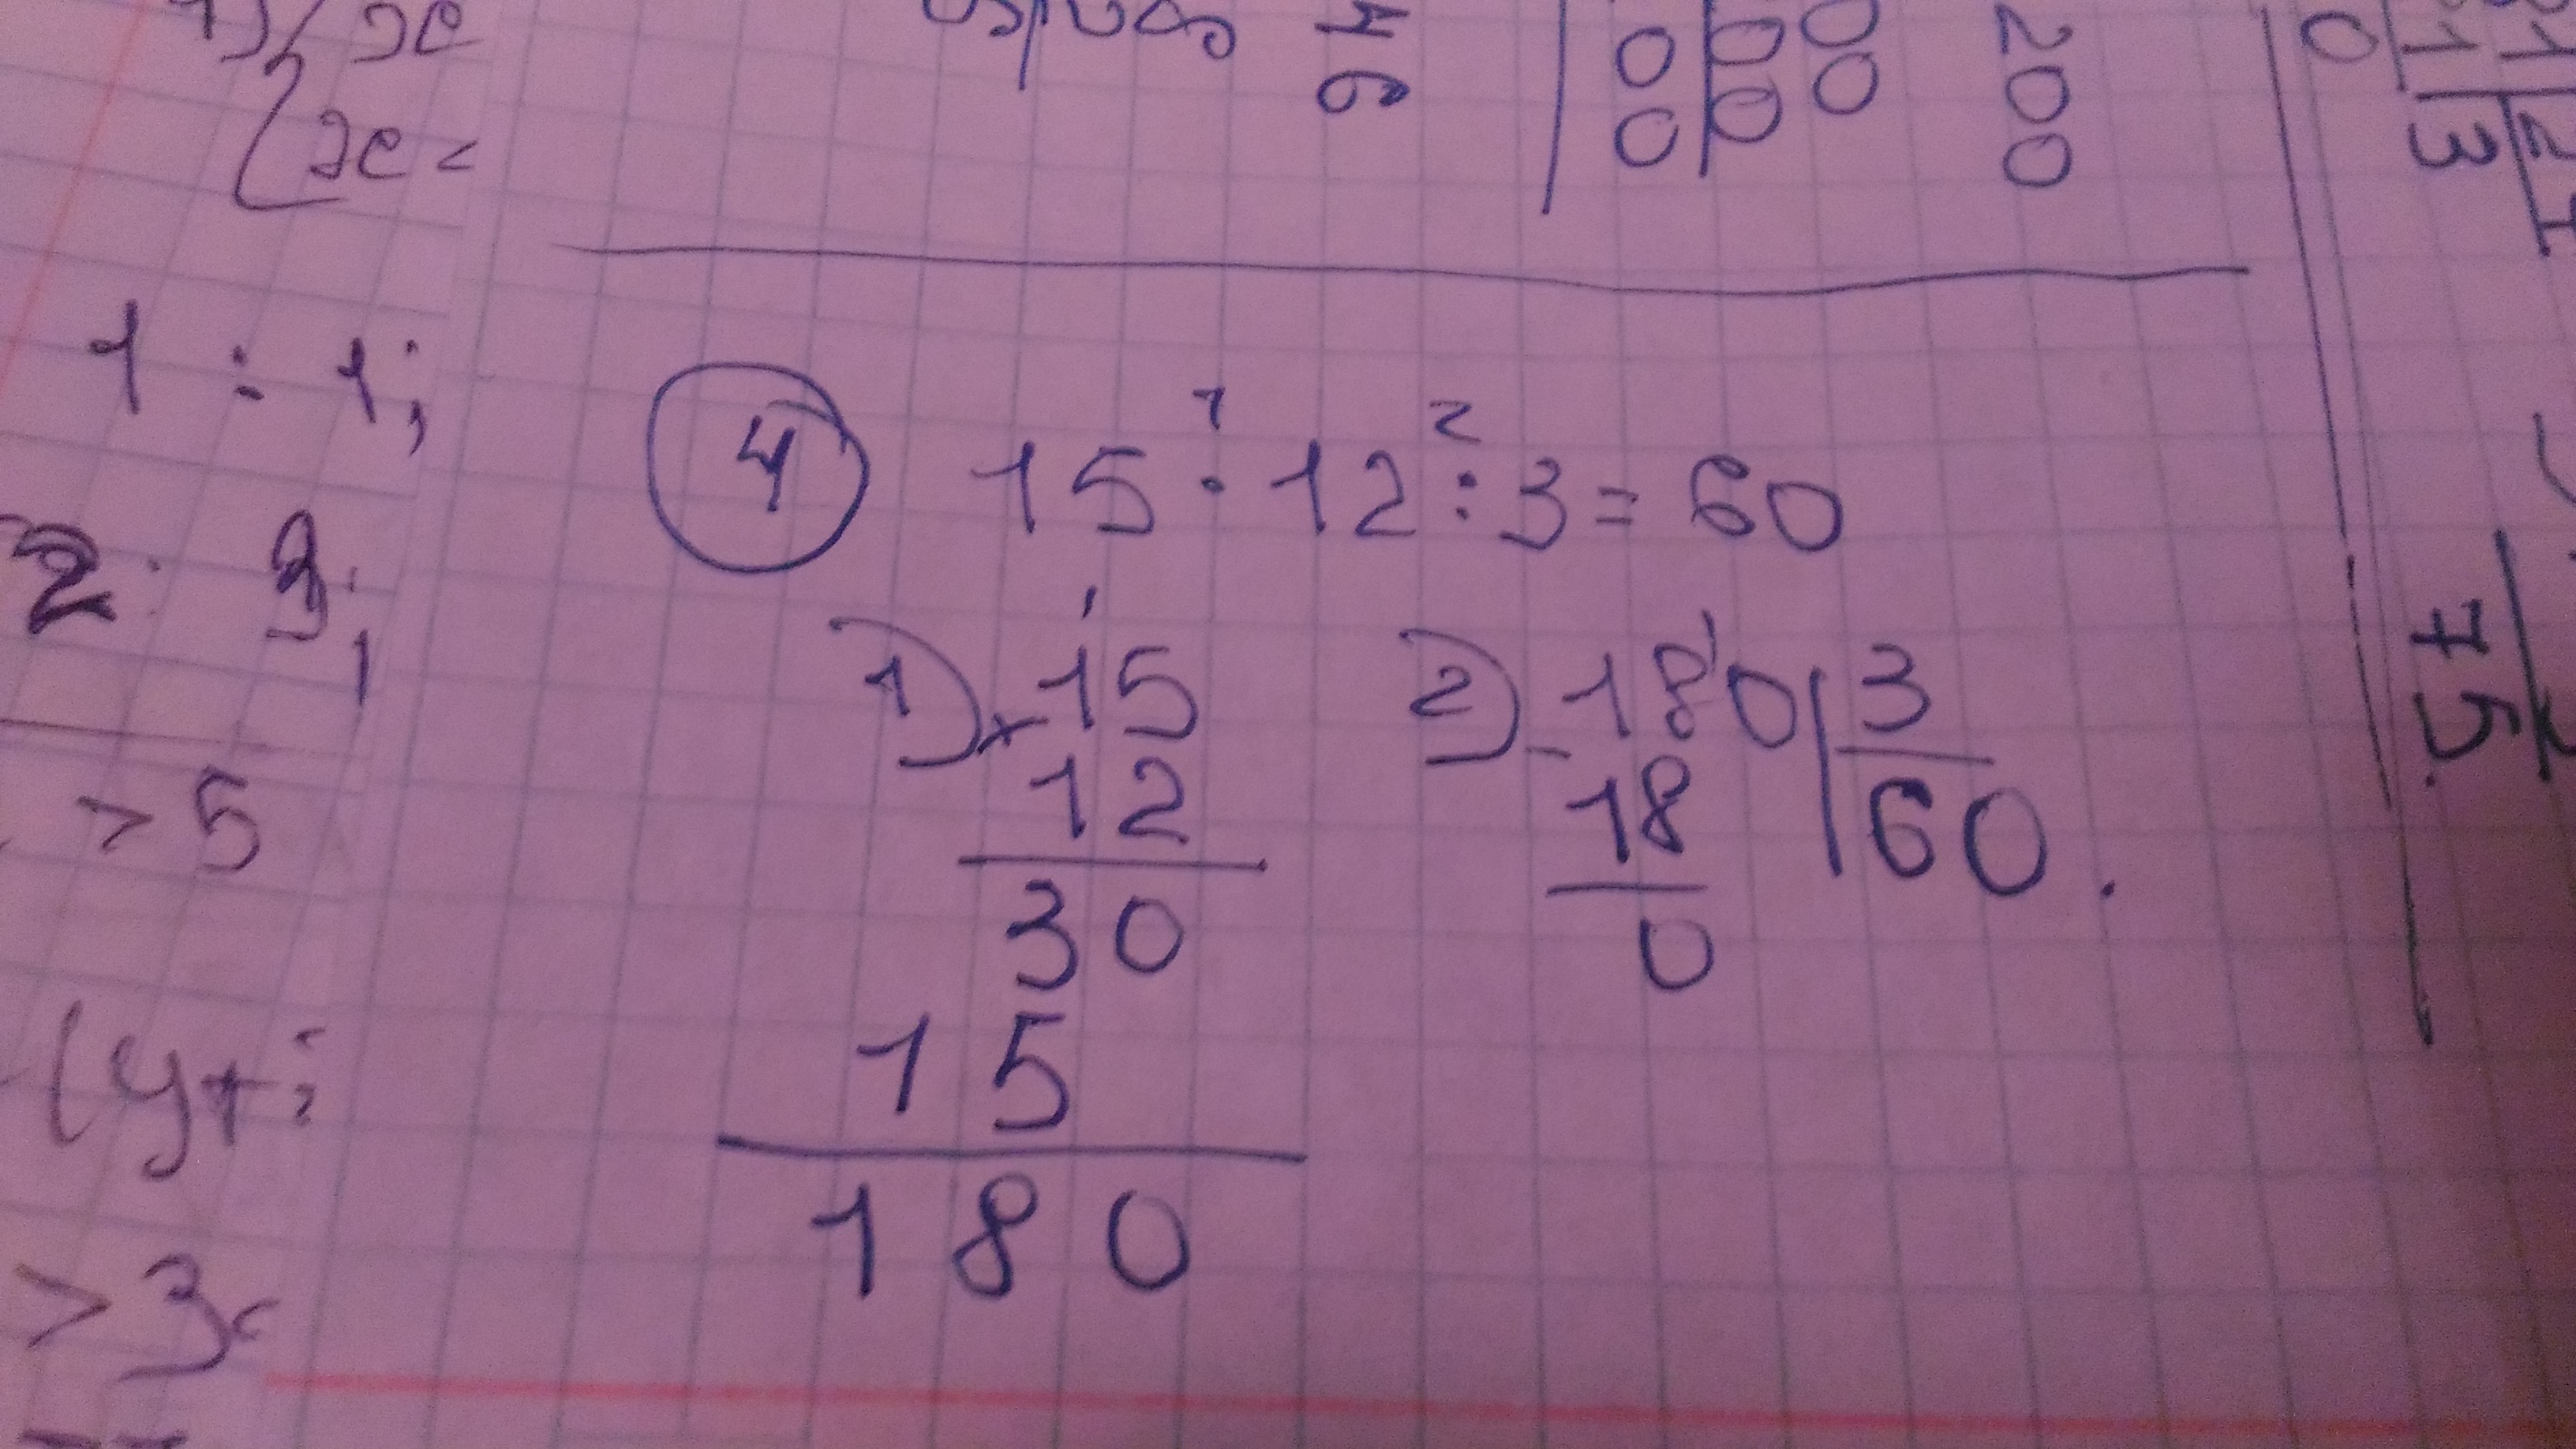 2x=
46
200
1 : 1;
④ 15 · 12 : 3 = 60
1 2
1) × 15
12
30
15
180
2) - 180 | 3
18 | 60.
0
> 5
(y+
> 3
75.